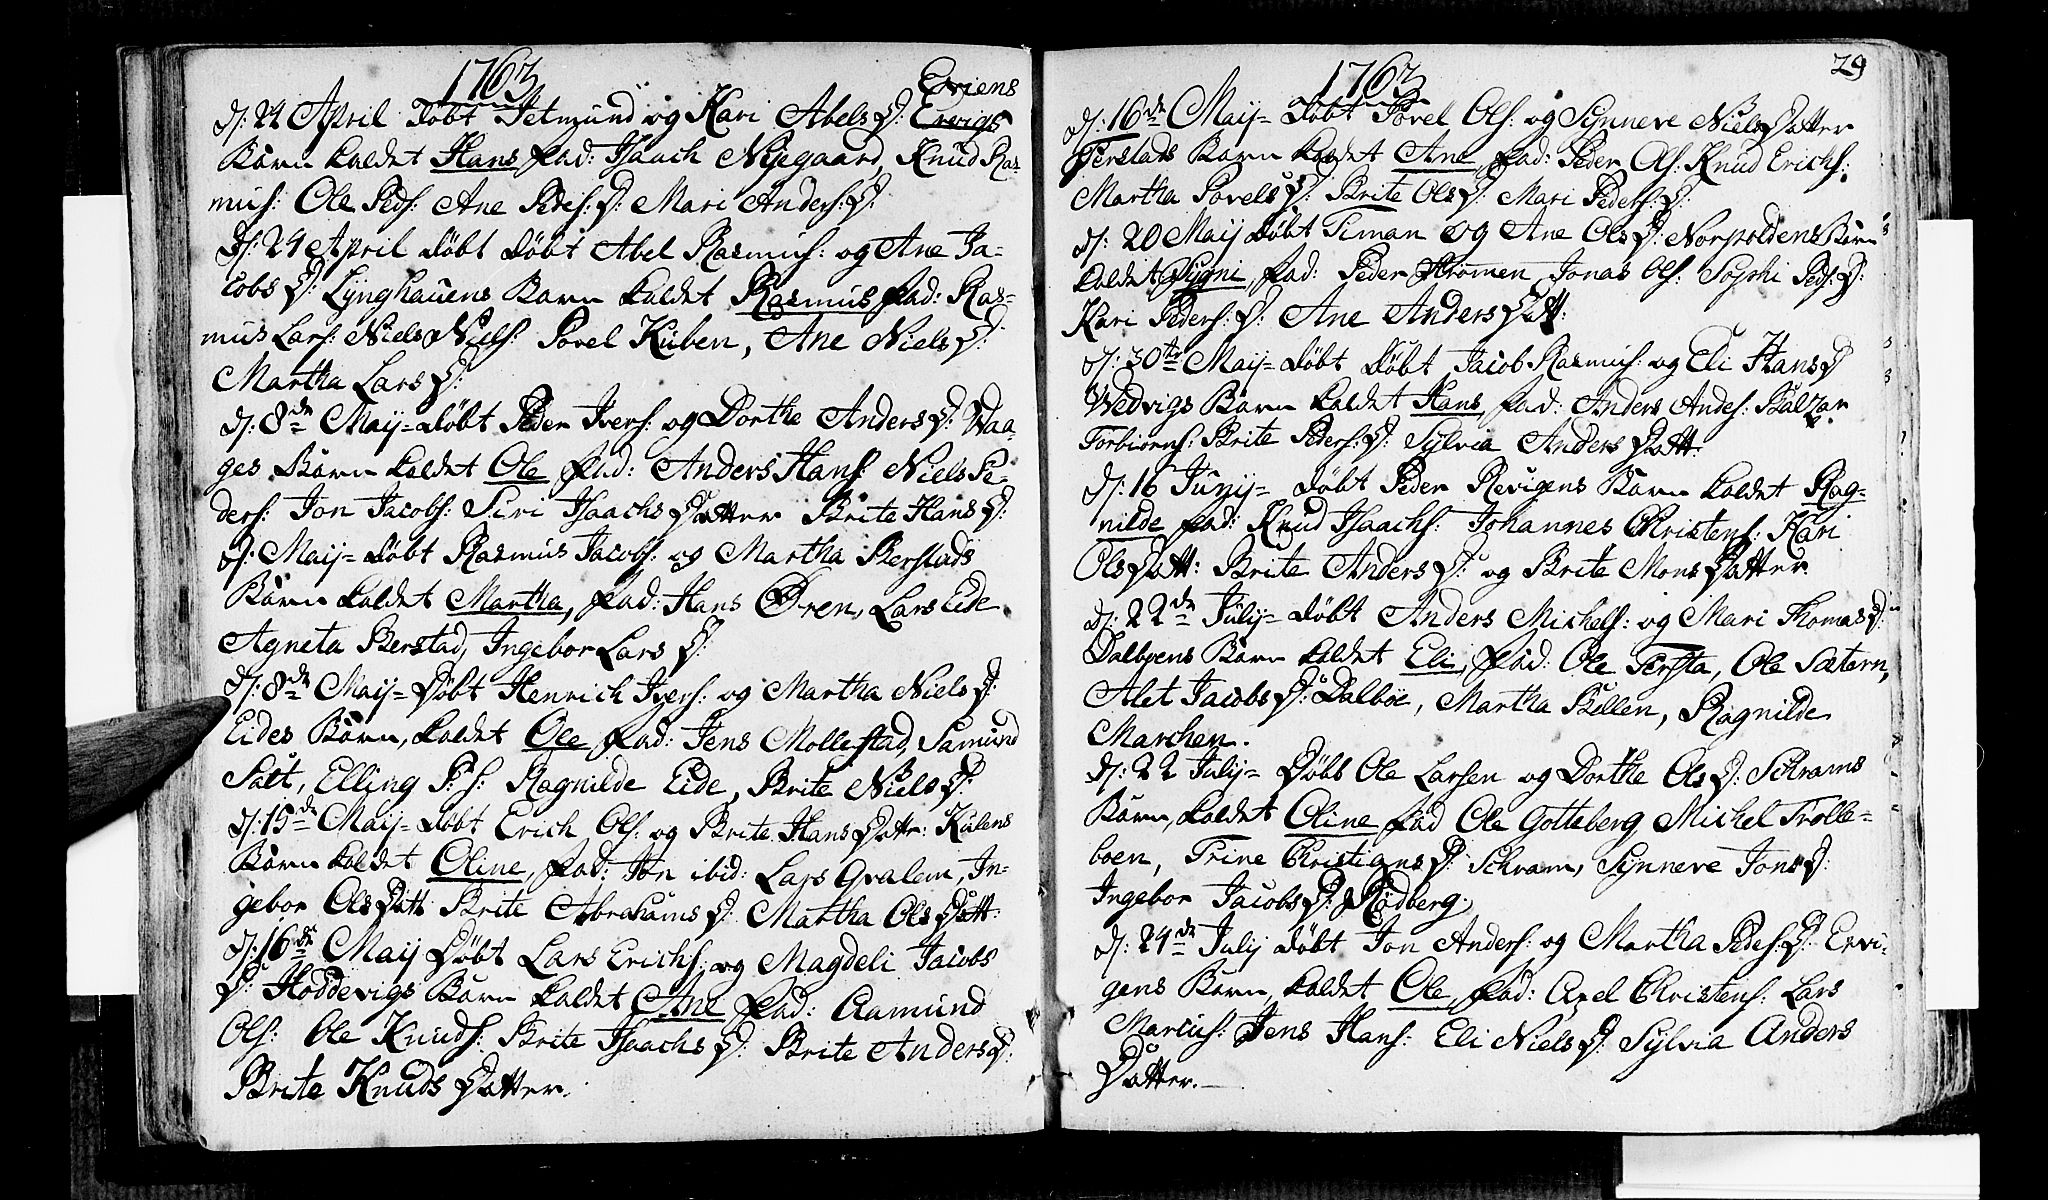 1763
Eviens
d: 24 April Døbt Jetmund og Kari AbelsD: Ervigs
Barn kaldet Hans fad: Isaach Nÿegaard, Knud Ras-
mus: Ole Peds: Ane Pedes:D: Mari Anders:D:
d: 24 April døbt døbt Abel Rasmus: og Ane Ja-
cobsD: Lÿnghauens Barn kaldet Rasmus fad: Ras-
mus Lars: Niels Niels: Povel Kuben, Ane NielsD:
Martha LarsD:
d: 8de Maij= døbt Peder Ivers: og Dorthe AndersD: Waa-
ges Barn kaldet Ole fad: Anders Hans: Niels Pe-
ders: Jon Jacobs: Siri Isaachs Datter Brite HansD:
d: Maij= døbt Rasmus Jacobs: og Martha Berstads
Barn kaldet Martha, fad: Hans Øren, Lars Eide
Agneta Berstad, Ingebor Lars D:
d: 8de Maij= Døbt Henrich Ivers: og Martha NielsD:
Eides Barn, kaldet Ole fad: Jens Mollestad, Samund
Satt, Elling P:s: Ragnilde Eide, Brite NielsD:
d: 15de Maij= døbt Erich Ols: og Brite Hans Datr: Kulens
Barn kaldet Oline, fad: Jon ibid: Lars Qvalem, In-
gebor Ols Datt: Brite AbrahamsD: Martha Ols Datt:
d: 16de Maij Døbt Lars Erichs: og Magdeli Jacobs
D: Hoddevigs Barn kaldet Ane fad: Aamund
Ols: Ole Knuds: Brite IsaachsD: Brite AndersD:
Brite Knuds Datter.
1763
29
d: 16de Maij= døbt Povel Ols: og Sÿnneve Niels Datter
Terstads Barn kaldet Ane, fad: Peder Ols: Knud Erichs:
Martha PovelsD: Brite OlsD: Mari Peders:D:
d: 20 Maij døbt Timan og Ane OlsD: Norpoldens Barn
kaldet Sygni, fad: Peder Strømen, Jonas Ols: Sophi Peds:D:
Kari Peders:D: Ane Anders Datt:
d: 30te Maij= døbt døbt Jacob Rasmus: og Eli HansD
Wedvigs Barn kaldet Hans, fad: Anders Andes: Balzar
Torbiørns: Brite Peders:D: Sÿlvia Anders Datt:
d: 16 Junij= døbt Peder Revigens Barn kaldet Rag-
nilde fad: Knud Isaachs: Johannes Christens: Kari
Ols Datt: Brite AndersD: og Brite Mons Datter.
d: 22de Julij= døbt Anders Michels: og Mari ThomasD:
Dalbøens Barn kaldet Eli, fad: Ole Tersta, Ole Sætern,
Alet JacobsD: Dalbøe, Martha Bøllen, Ragnilde
Marchen.
d: 22 Julij= Døbt Ole Larsen og Dorthe OlsD: Schrams
Barn, kaldet Oline fad Ole Gotteberg Michel Trolle-
boen, Trine ChristiansD: Schram, Sÿnneve JonsD:
Ingebor JacobsD: Rødberg.
d: 24de Julij døbt Jon Anders: og Martha Pedes:D: Ervi-
gens Barn, kaldet Ole, fad: Axel Christens: Lars
Marcus: Jens Hans: Eli NielsD: Sÿlvia Anders
Datter.